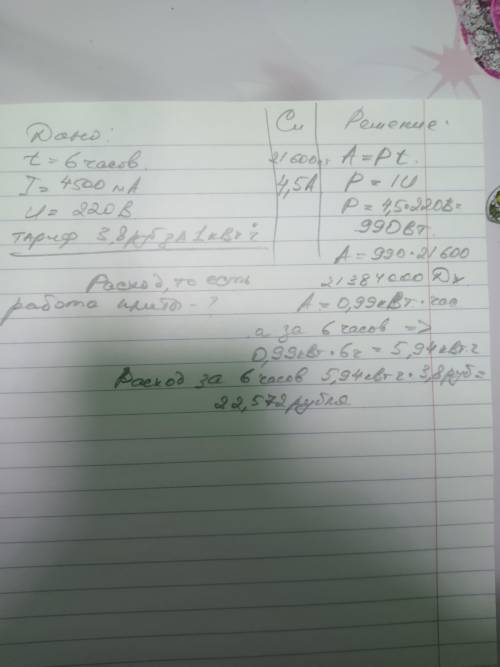 Дано:
t = 6 часов
I = 4500 мА
U = 220 В
тариф 3,8 руб за 1 кВт ч
Расход, то есть
работа плиты - ?
Си
21600
4,5А
Решение:
A = Pt.
P = IU
P = 4,5·220В=
990Вт.
A = 990·21600
21384000 Дж
A = 0,99кВт·час
а за 6 часов =>
0,99кВт·6ч = 5,94кВт.ч
Расход за 6 часов 5,94кВт ч·3,8руб=
22,572рубля